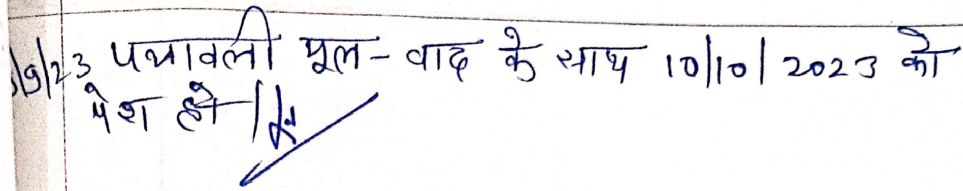 /9/23 पत्रावली मूल - वाद के साथ 10/10/2023 को
पेश हो।